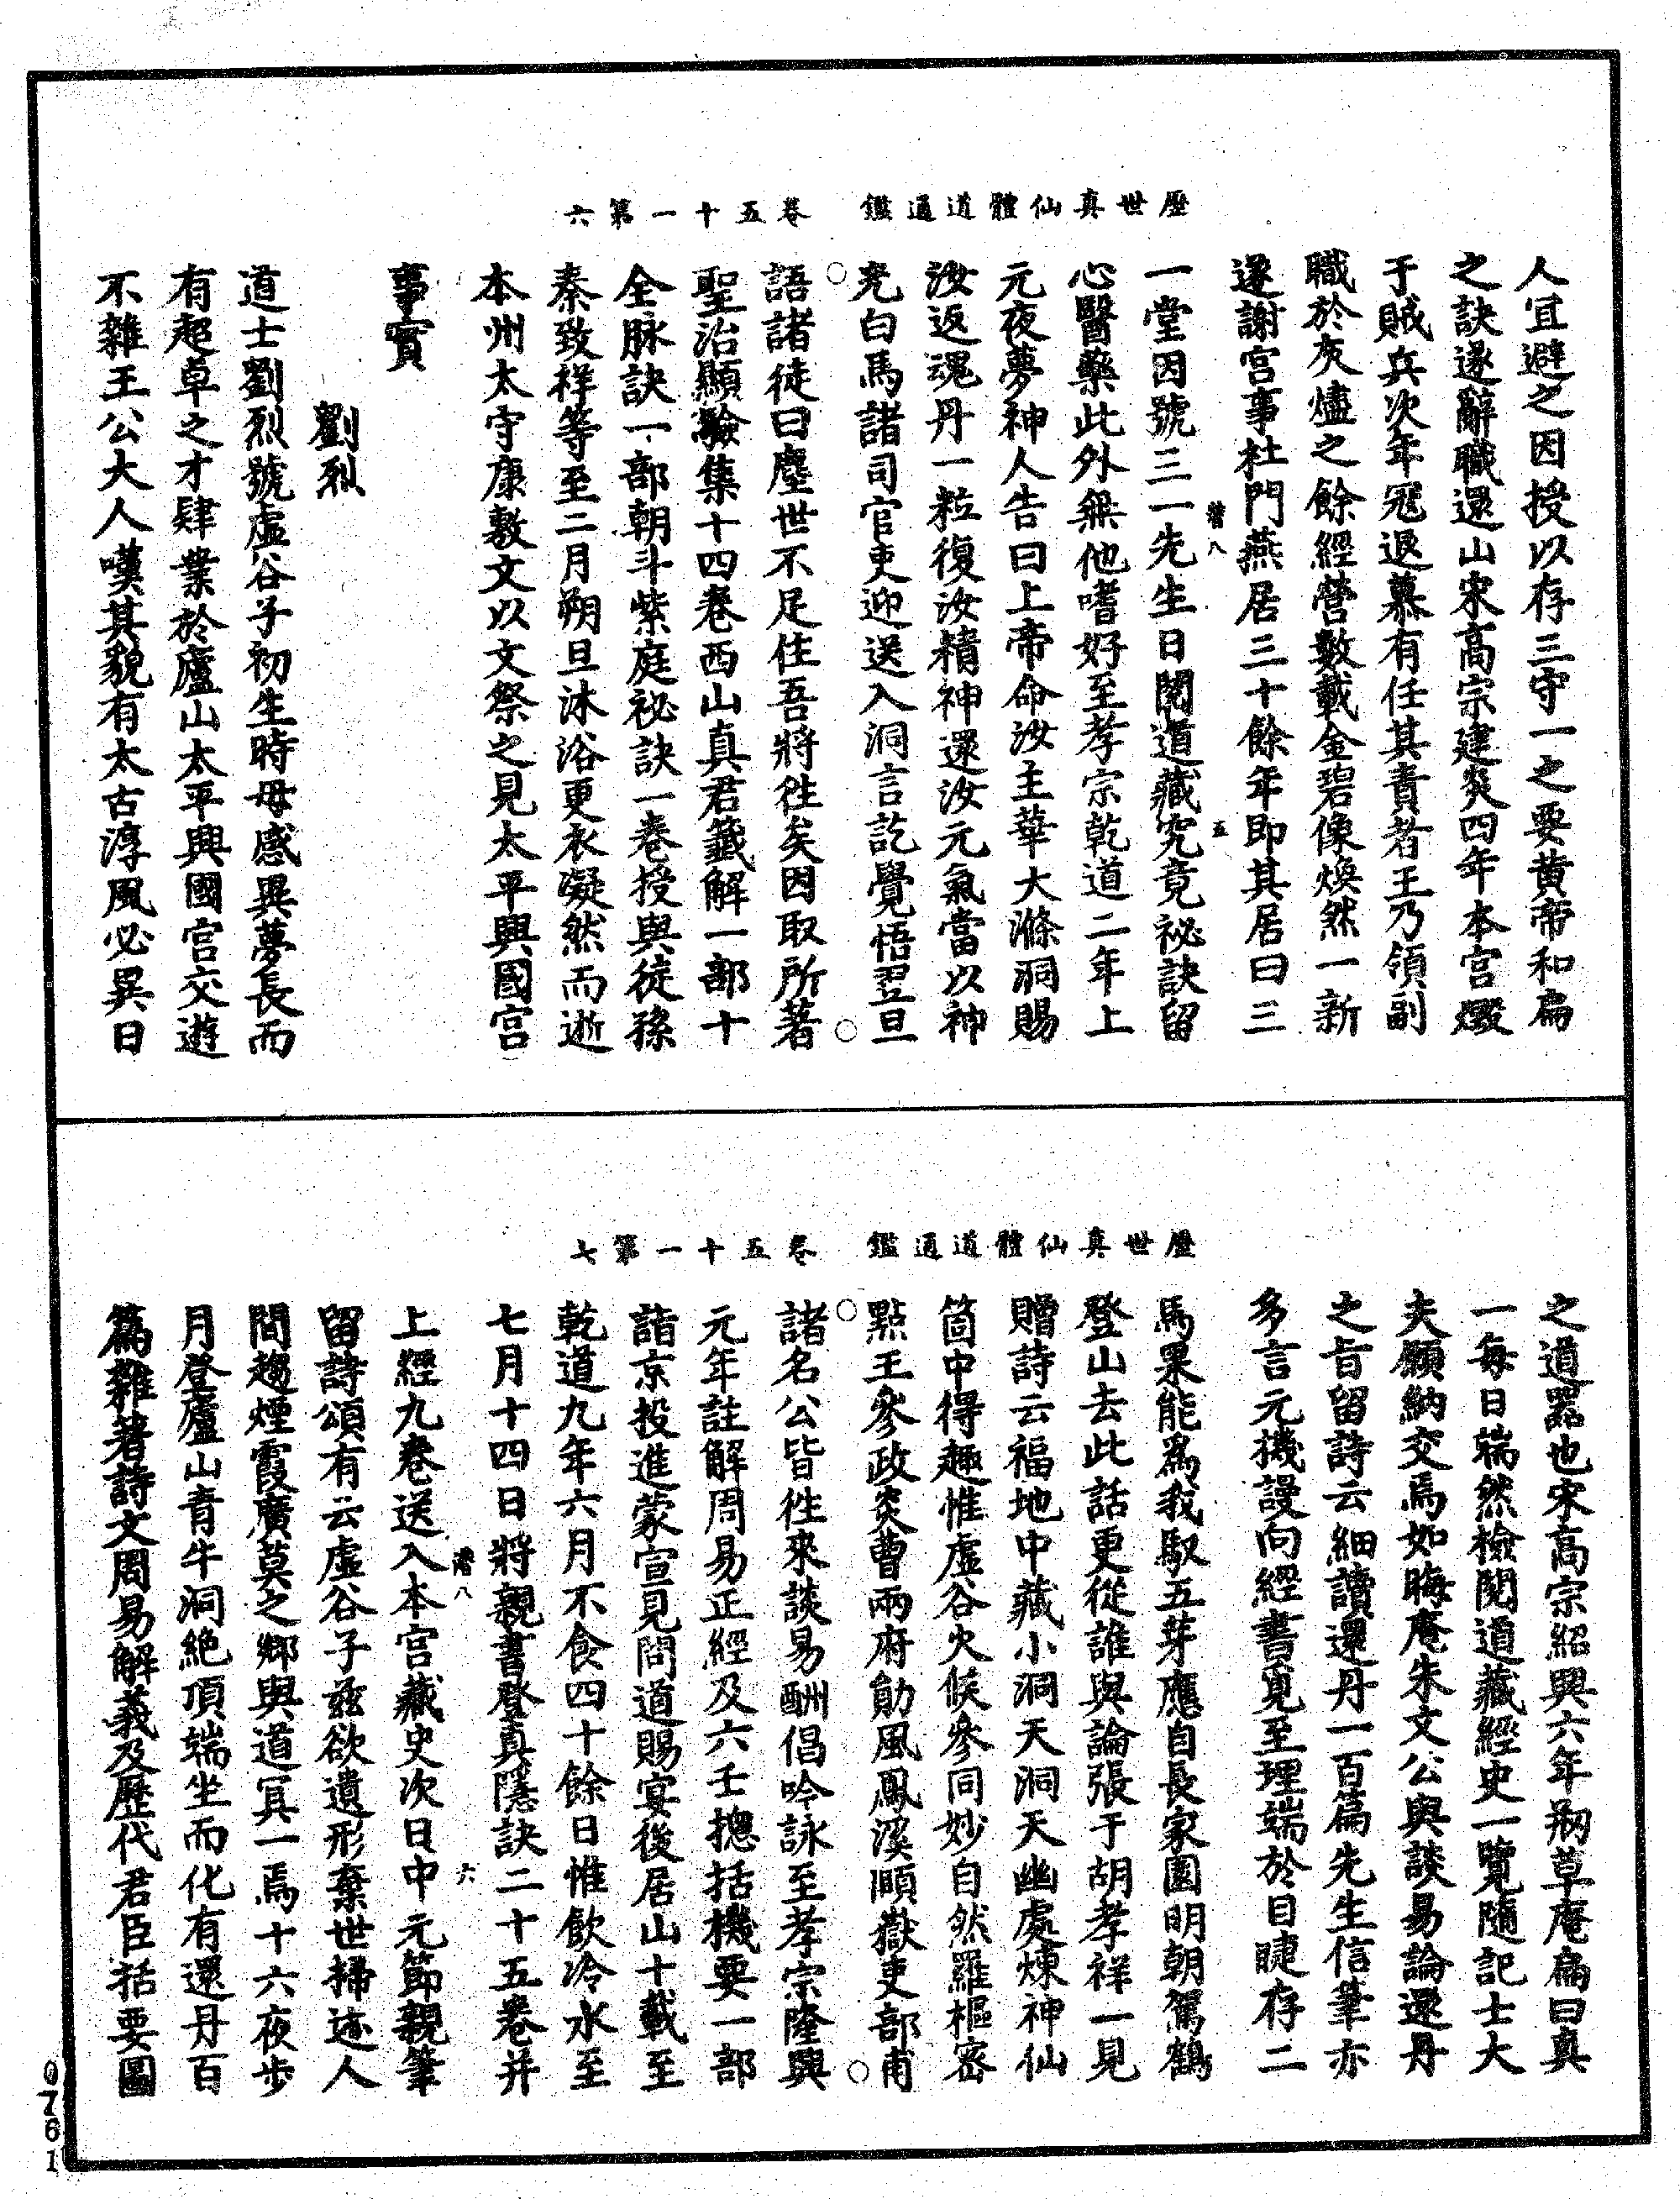 歷世真仙體道通鑑　卷五十一第六
人宜避之因授以存三守一之要黃帝和扁
之訣遂辭職還山宋高宗建炎四年本宮燬
于賊兵次年冦退慕有任其責者王乃領副
職於灰燼之餘經營數載金碧像煥然一新
遂謝宮事杜門燕居三十餘年即其居曰三
八　五
一堂因號三一先生日閱道藏究竟祕訣留
心醫藥此外無他嗜好至孝宗乾道二年上
元夜夢神人告曰上帝命汝主華大滌洞賜
汝返魂丹一粒復汝精神還汝元氣當以神
充白馬諸司官吏迎送入洞言訖覺悟翌旦
語諸徒曰塵世不足住吾將徃矣因取所著
聖治顯驗集十四卷西山真君籤解一部十
全脉訣一部朝斗紫庭祕訣一卷授與徒孫
秦致祥等至二月朔旦沐浴更衣凝然而逝
本州太守康敷文以文祭之見太平興國宮
事實
劉烈
道士劉烈號虛谷子初生時母感異夢長而
有超卓之才肄業於廬山太平興國宮交遊
不雜王公大人嘆其貌有太古淳風必異日
歷世真仙體道通鑑　卷五十一第七
之道器也宋高宗紹興六年剏草庵扁曰真
一每日端然檢閱道藏經史一覽隨記士大
夫願納交焉如晦庵朱文公與談易論還丹
之旨留詩云細讀還丹一百篇先生信筆亦
多言元機謾向經書覓至理端於目睫存二
馬果能爲我馭五芽應自長家園明朝駕鶴
登山去此話更從誰與論張于胡孝祥一見
贈詩云福地中藏小洞天洞天幽處煉神仙
箇中得趣惟虛谷火候參同妙自然羅樞密
點王參政炎曹兩府勛風鳳溪頤嶽吏部甫
諸名公皆徃來談易酬倡吟詠至孝宗隆興
元年註解周易正經及六壬摠括機要一部
詣京投進蒙宣見問道賜宴後居山十載至
乾道九年六月不食四十餘日惟飲冷水至
七月十四日將親書登真隱訣二十五卷并
八　六
上經九卷送入本宮藏史次日中元節親筆
留詩頌有云虛谷子兹欲遺形棄世掃迹人
間趨煙霞廣莫之鄉與道冥一焉十六夜步
月登廬山青牛洞絕頂端坐而化有還丹百
篇雜著詩文周易解義及歷代君臣括要圖
0761